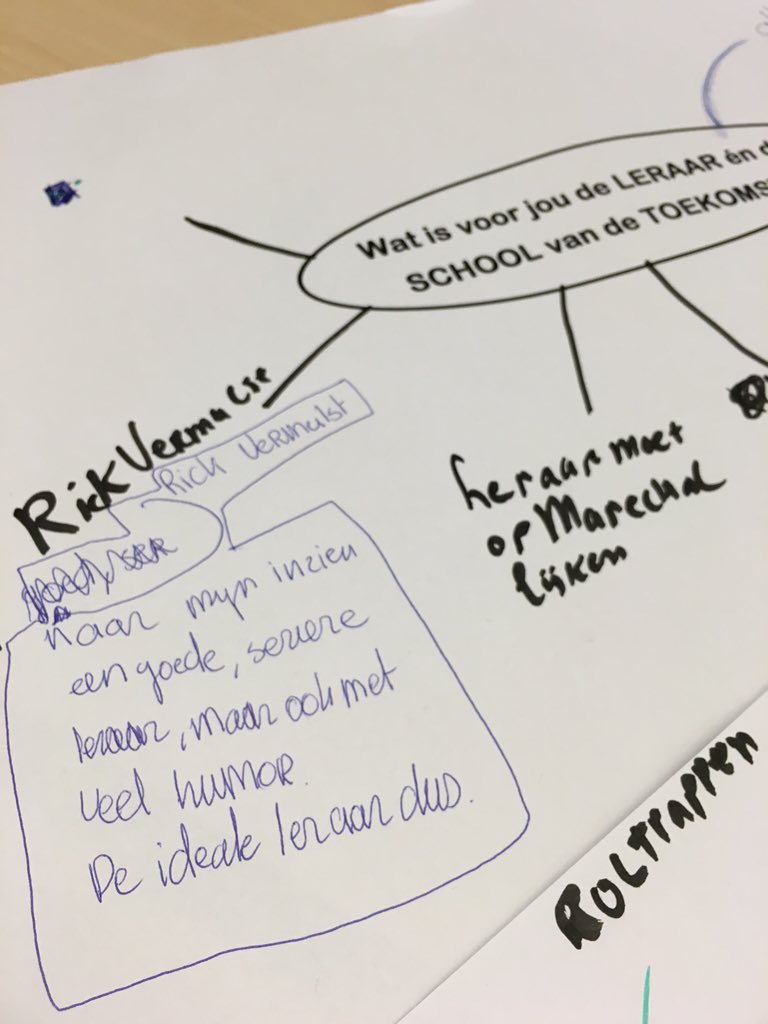 Wat is voor jou de LERAAR én d
SCHOOL van de TOEKOMS
Rick Vermulst
Rick Vermulst
Naar mijn inzien
een goede, seriere
leraar, maar ook met
veel humor.
De ideale leraar dus.
Leraar moet
op Marechal
lijken
Roltrappen